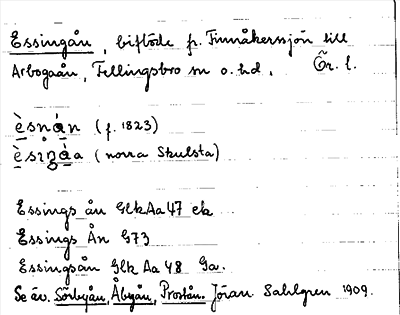 Essingån, biflöde fr. Finnåkerssjön till
Arbogaån, Fellingsbro sn o. hd. Ör. l.
èsnán (f. 1823)
(norra Skulsta)
Essings ån GlkAa47 ek
Essings Ån G73
Essingsån Glk Aa 48 Ga.
Se äv. Sörbyån, Åbyån, Prostån. Jöran Sahlgren 1909.